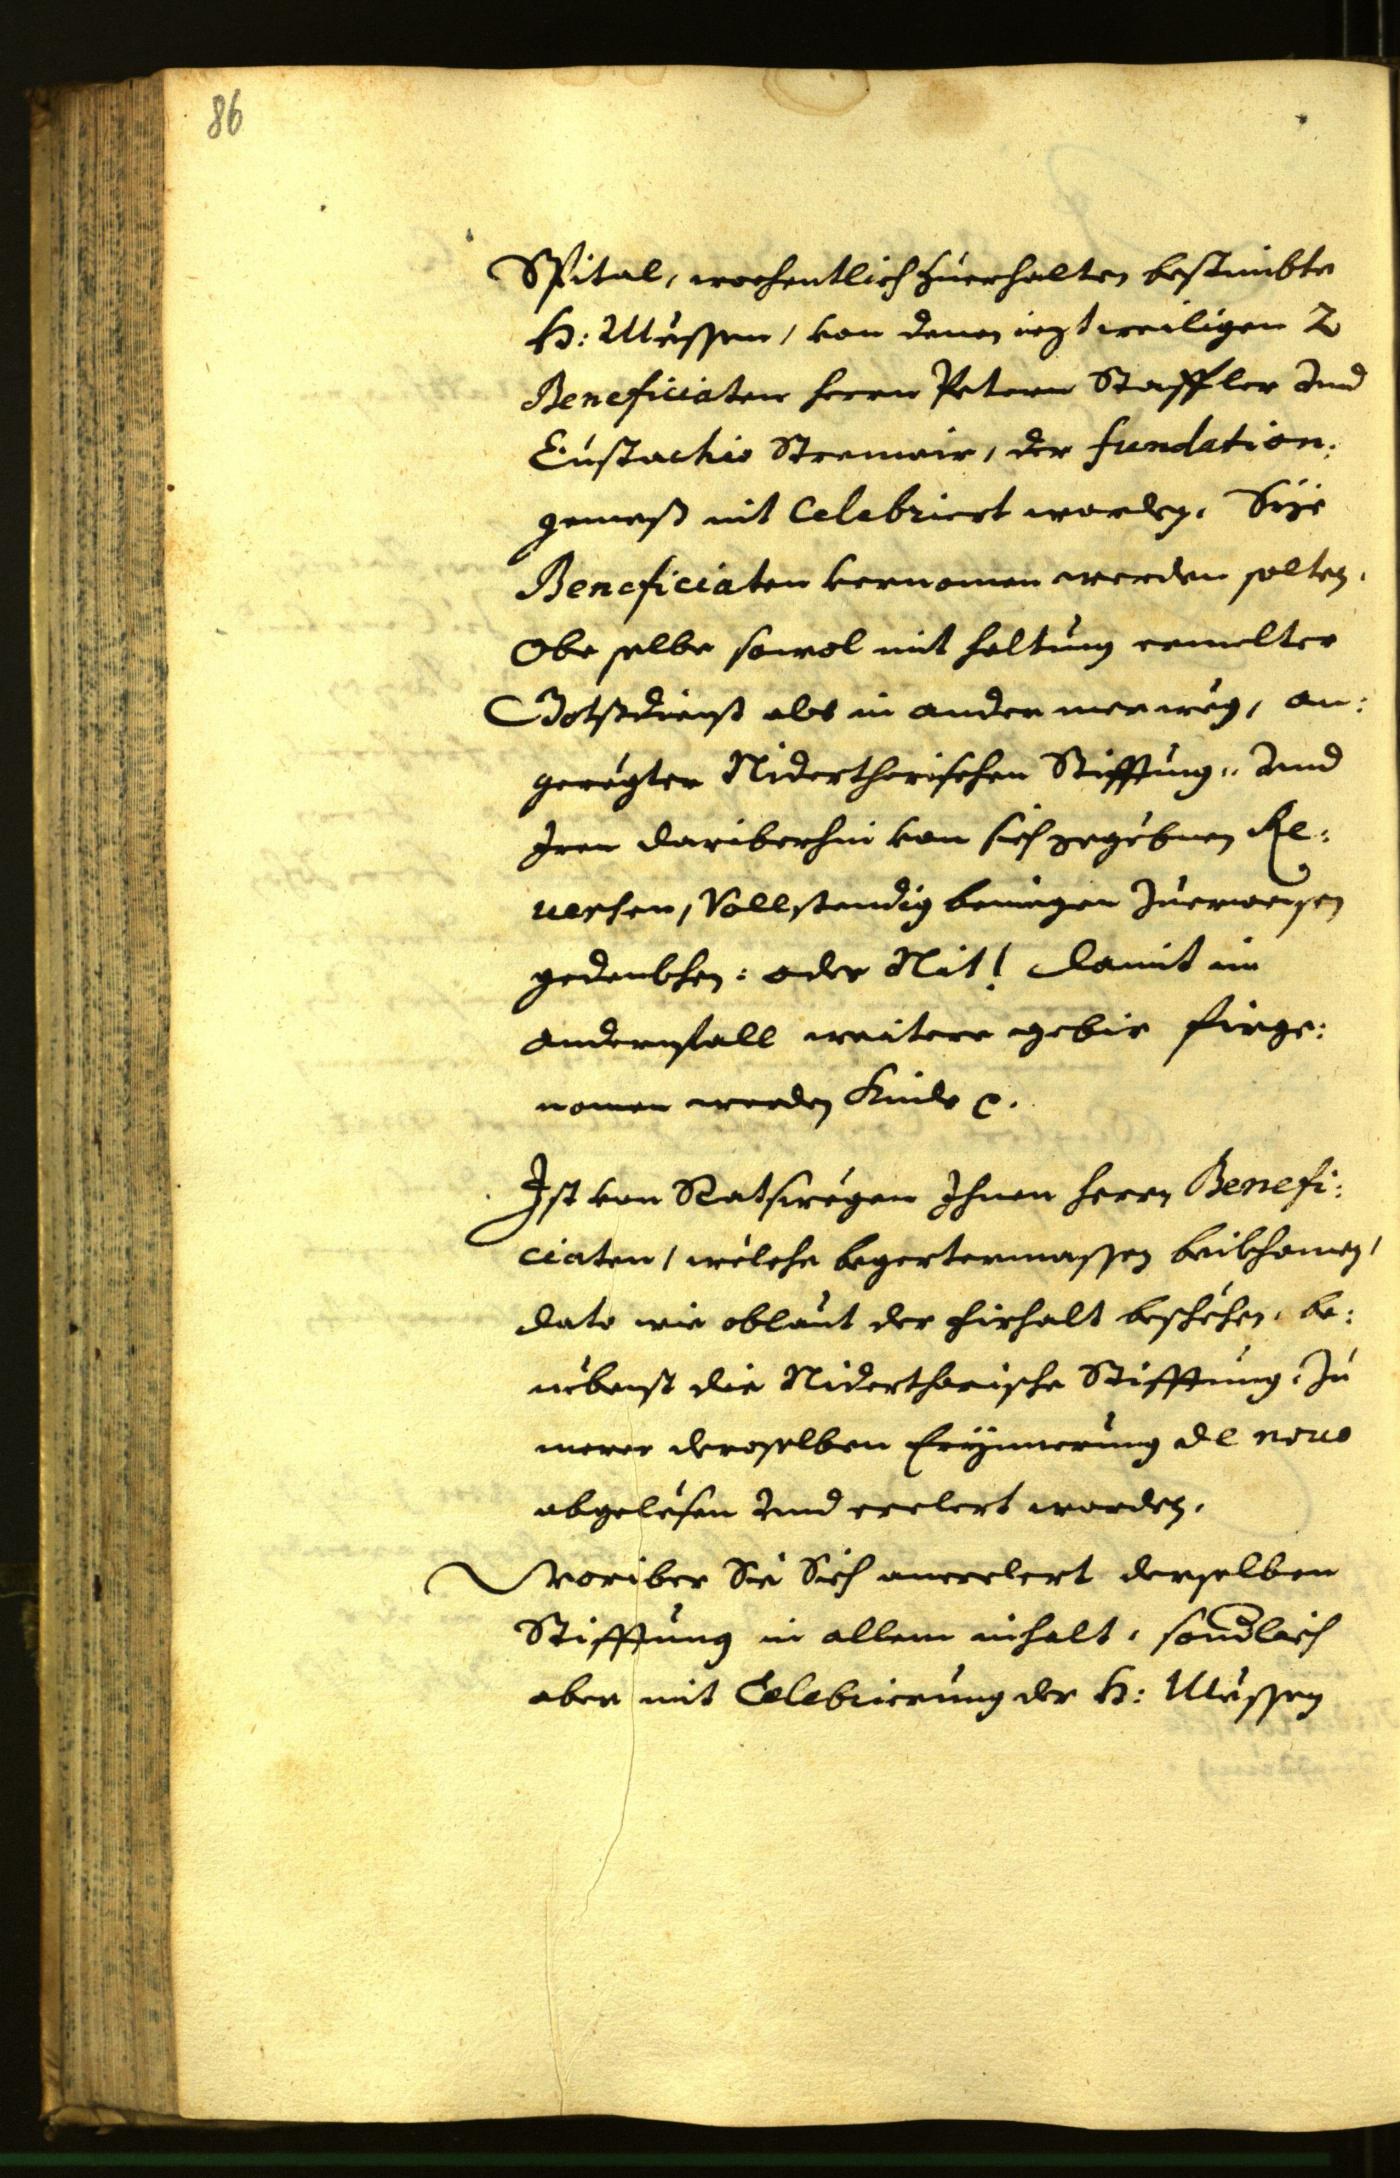 86
Spital, wochentlich zuerhalten bestimbte
H: Mëssen, von denen ieztweiligen 2
Beneficiaten herrn Petern Staffler und
Eustachio Stremair, der fundation:
gemeß nit Celebriert worden. Sÿe
Beneficiaten vernomen werden solten.
Obe selbe sowol mit haltung ermelter
Gotsdienst als in ander meer weg, an:
gerëgter Nidertherischen Stifftung: und
Iren dariberhin von sich gegëbnen Re:
versen, Vollstendig beniegen zuerweisen
gedenkhen: oder Nit! damit im
andernfall weitere gebir firge:
nomen werden kinde etc.
Ist von Ratswëgen Ihnen herrn Benefi:
ciaten, wëlche begertermassen beikhomen,
dato wie oblaut der firhalt beschëhen, be:
nëbenst die Nidertherische Stifftung, zu
merer derselben Eryннerung de novo
abgelësen und erclert worden.
Woriber Sie Sich anerclert derselben
Stifftung in allem inhalt, sondlich
aber mit Celebrierung der H: Mëssen